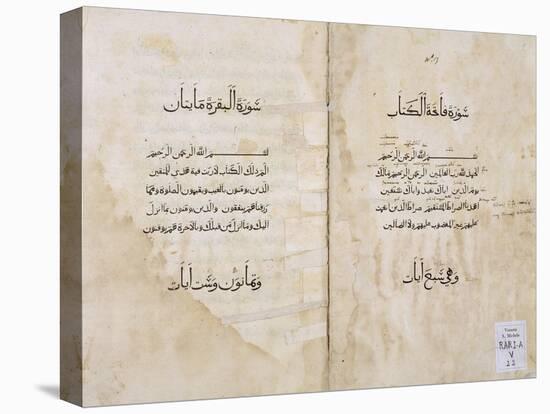 سورة فاتحة الكتاب
بسم الله الرحمن الرحيم
الحمد لله رب العالمين الرحمن الرحيم مالك
يوم الدين اياك نعبد واياك نستعين
اهدنا الصراط المستقيم صراط الذين انعمت
عليهم غير المغضوب عليهم ولا الضالين
وهي سبع آيات
سورة البقرة مأيتان
بسم الله الرحمن الرحيم
الم ذلك الكتاب لا ريب فيه هدى للمتقين
الذين يومنون بالغيب ويقيمون الصلوة ومما
رزقناهم ينفقون والذين يومنون بما انزل
اليك وما انزل من قبلك وبالاخرة هم يوقنون
وثمانون وست آيات
Venezia
S. Michele
RARI-A
V
22